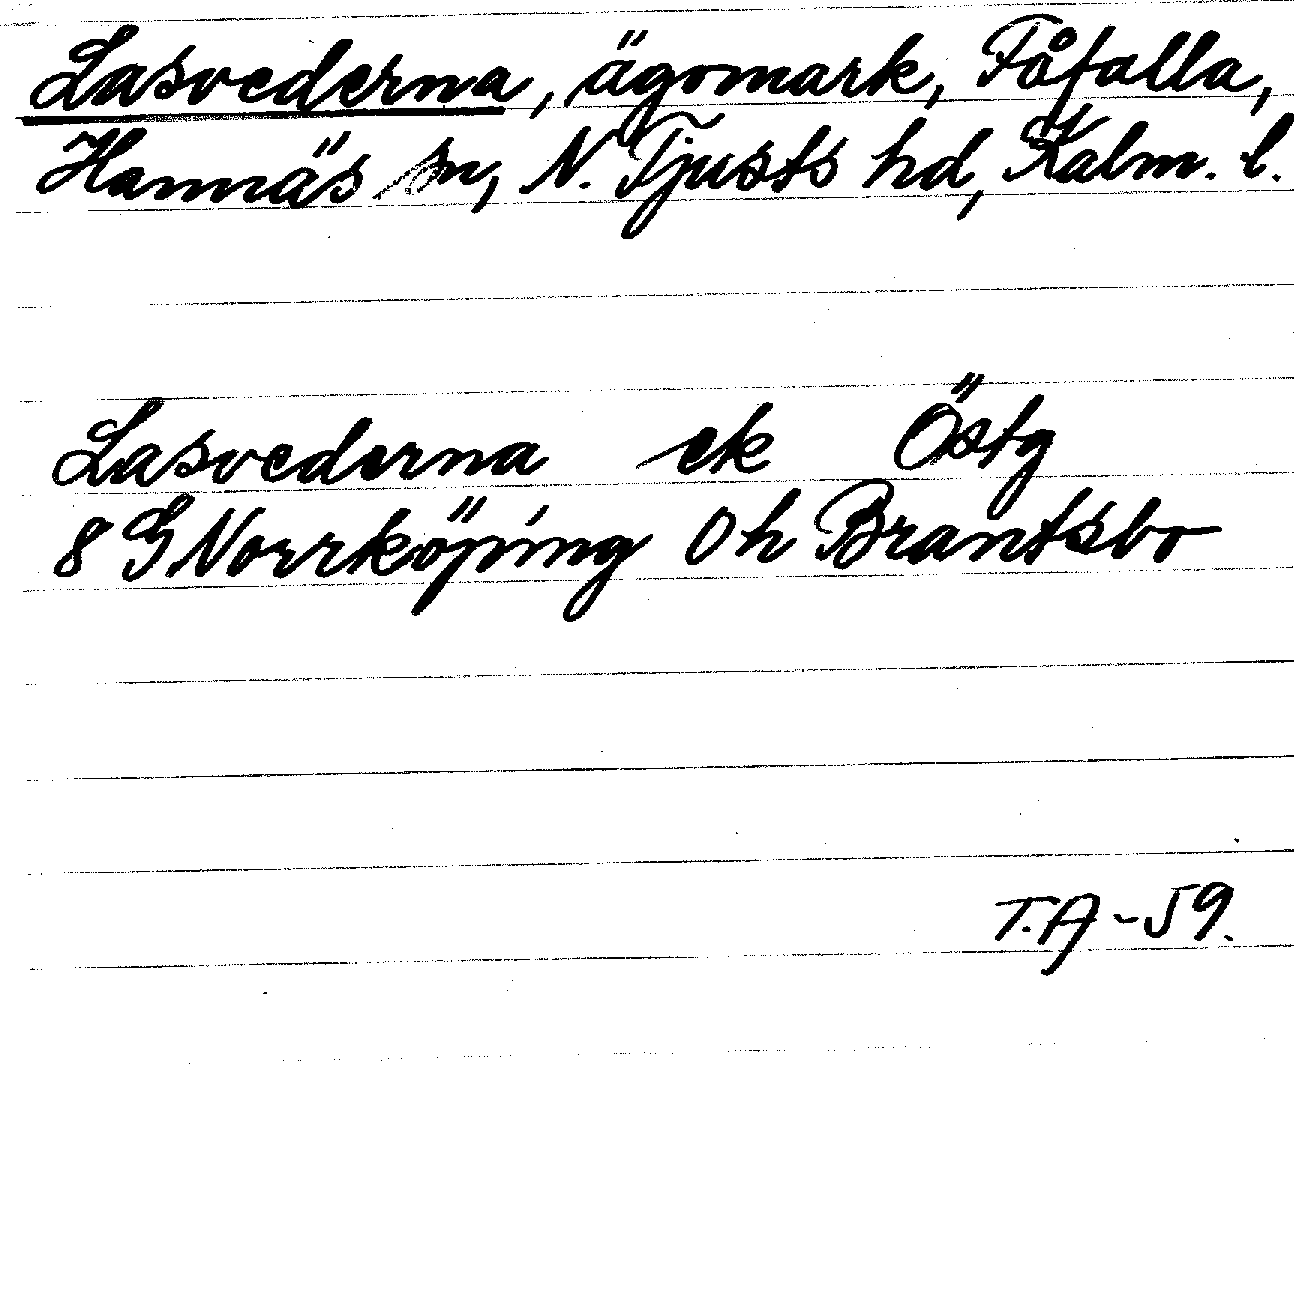 Lasvederna, ägomark, Fåfalla,
Hannäs sn, N. Tjusts hd, Kalm. l.
Lasvederna ek Östg
8 G Norrköping 0 h Brantsbo
T.A-59.